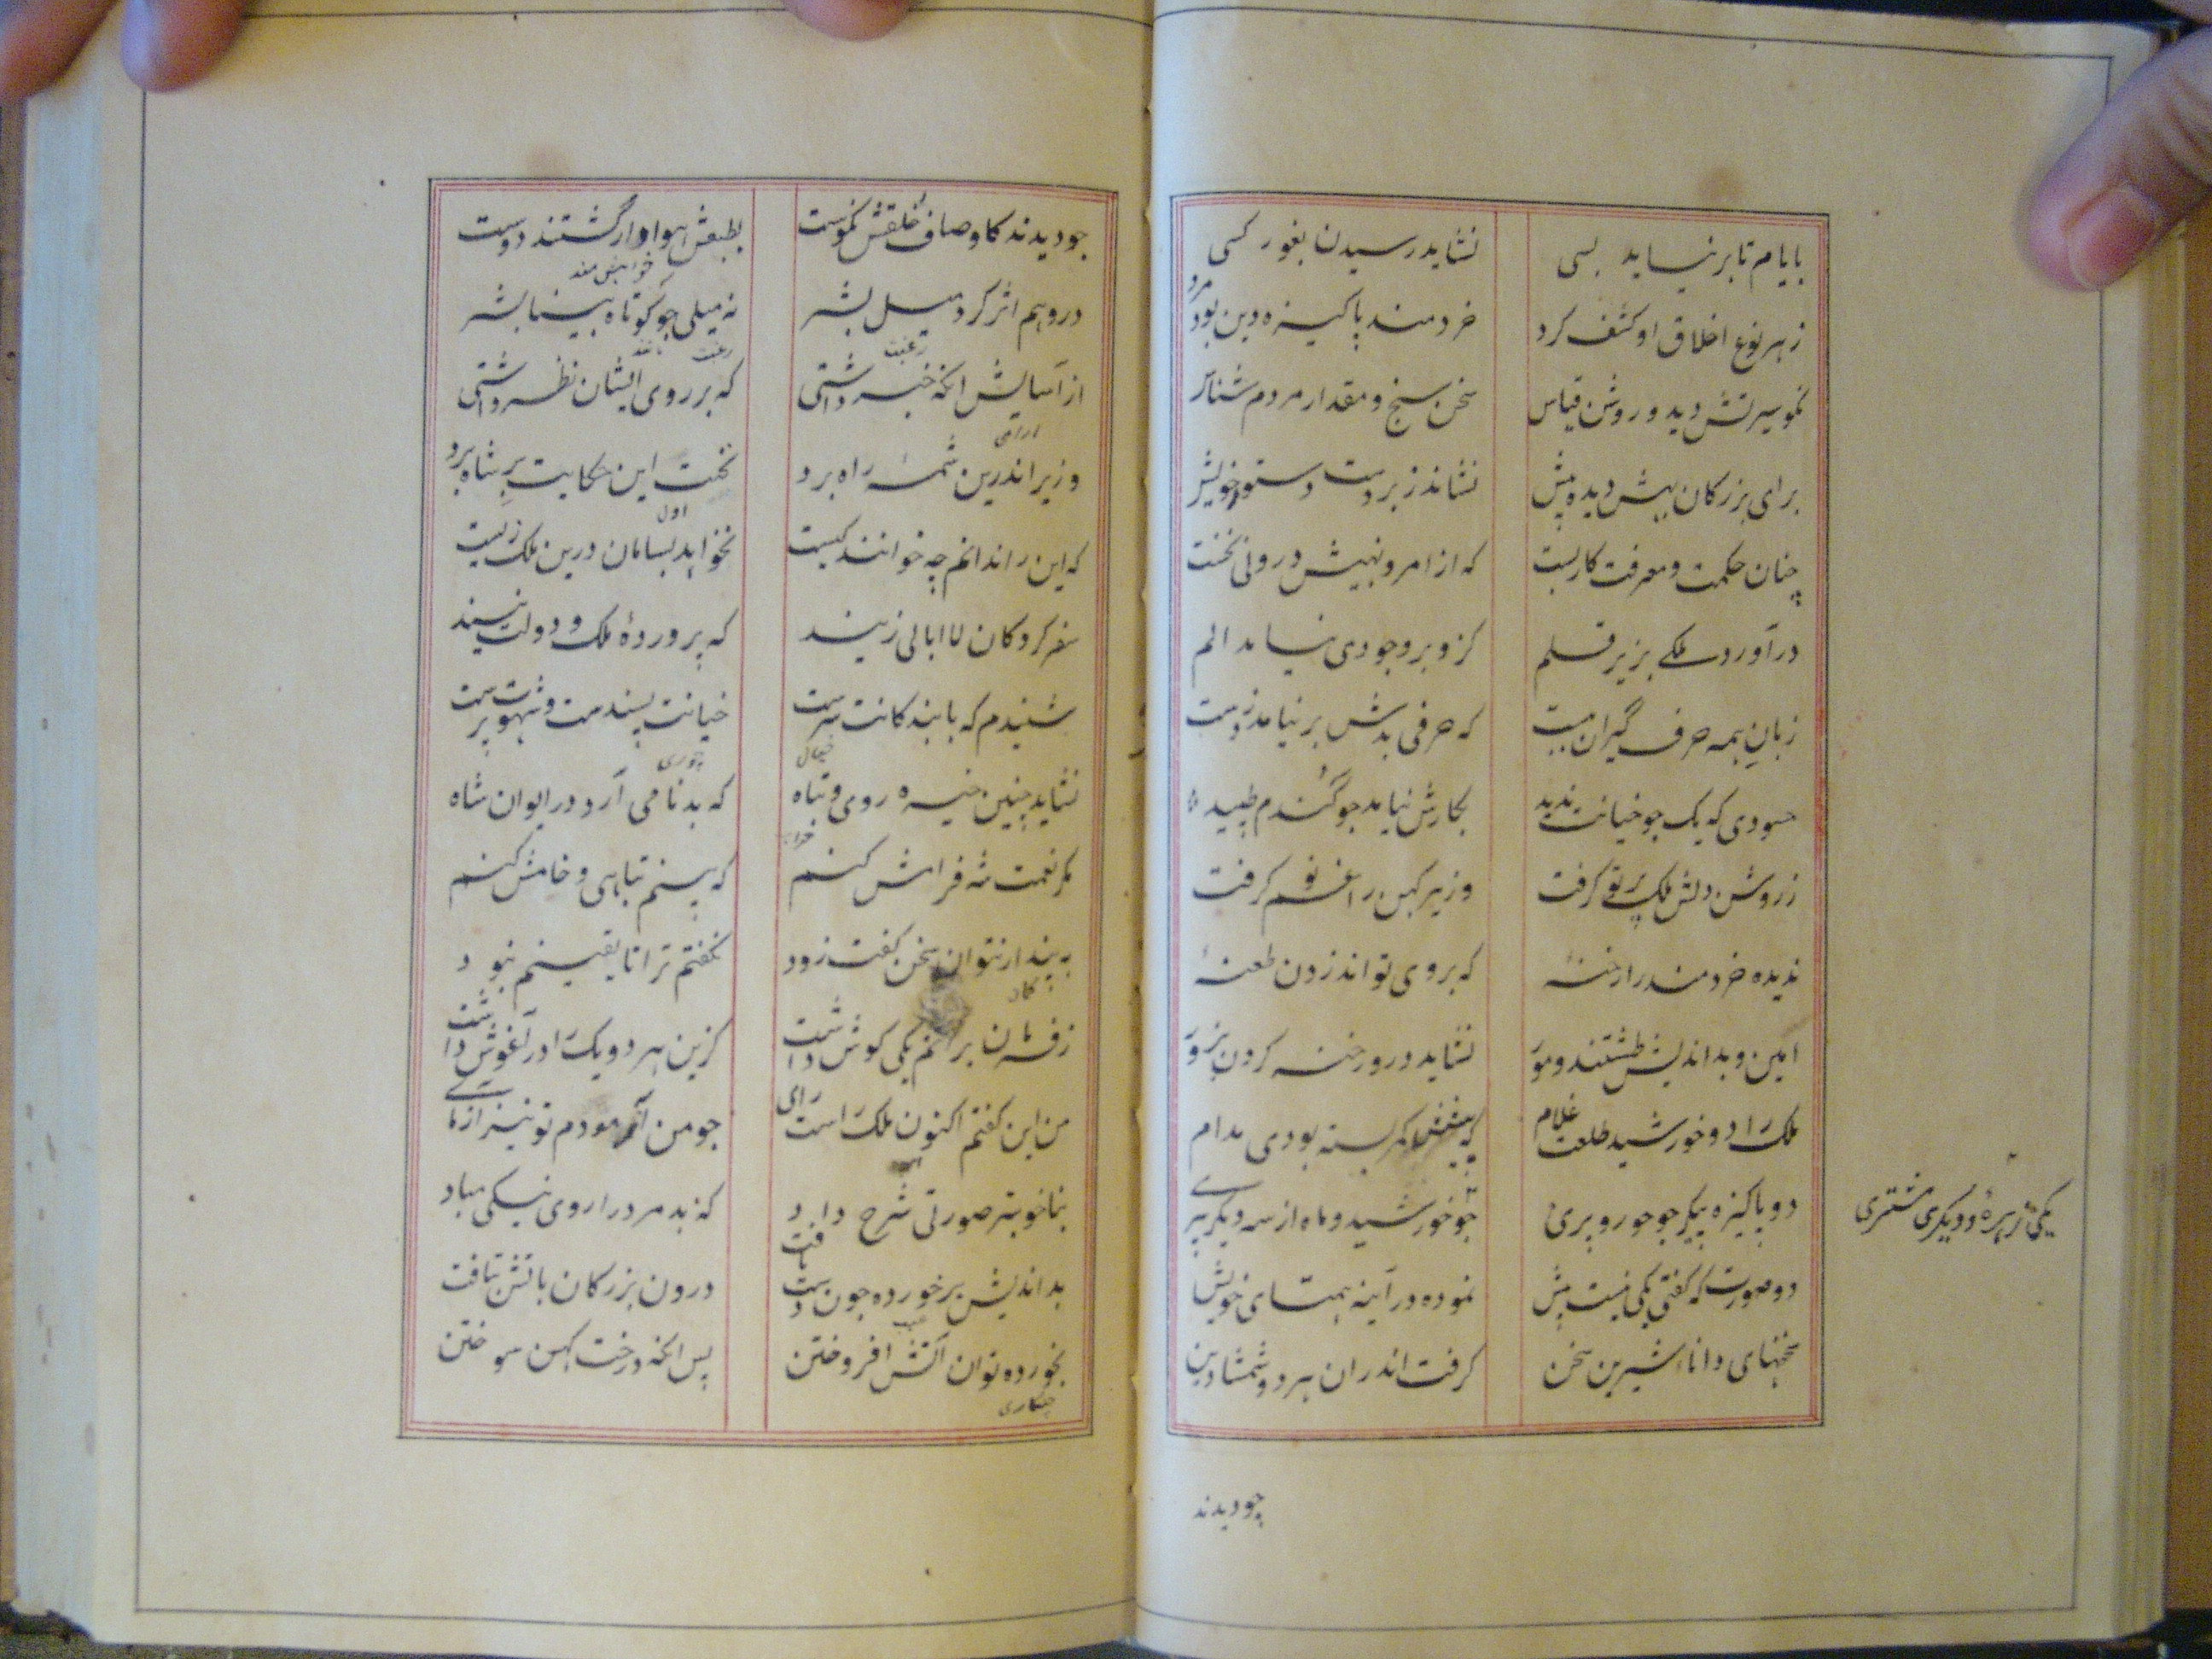 بایام تا بر نیاید بسی نشاید رسیدن بغور کسی
زهر نوع اخلاق او کشف کرد خردمند پاکیزه دین بود مرد
نکو سیرتش دید و روشن قیاس سخن سنج و مقدار مردم شناس
برای بزرکان بیش دیده پیش نشاند زبر دست دستور خویش
چنان حکمت و معرفت کار بست که از امر و نهیش درونی نخست
در آورد ملکی بزیر قلم کزو بر وجودی نیامد الم
زبان همه حرف گیران ببست که حرفی بدش بر نیامد ز دست
حسودی که یک جو خیانت ندید بکارش نیامد جو گندم طپید
ز روشن دلش ملک پرتو کرفت وزیر کهن را غم نو کرفت
ندید خردمند را رخنهٔ که بر وی تواند زدن طعنهٔ
امین و بد اندیش طشتند و مور نشاید درو رخنه کردن بزور
ملک را دو خورشید طلعت غلام کمر بسته بودی مدام
دو پاکیزه پیکر جو حور و پری جو خورشید و ماه از سه دیکر بری
یکی زهره و دیکری مشتری
دو صورت که کفتی یکی نیست بیش نموده در آینه همتای خویش
سخنهای دانای شیرین سخن کرفت اندران هر دو شمشاد بن
چو دیدند
جو دیدند کاوصاف خلقش نکوست بطبعش هوادار گشتند دوست
خواهش مند
درو هم اثر کرد میل بشر نه میلی جو کوتاه بینا بشر
رغبت رغبت
از آسایش انکه خبر داشتی که بر روی ایشان نظر داشتی
ارامی
وزیر اندرین شمهٔ راه برد نخست این حکایت بر شاه برد
اول
که این را ندانم چه خوانند کیست نخواهد بسامان درین ملک زیست
سفر کردکان لا ابالی زیند که پروردهٔ ملک و دولت نیند
شنیدم که با بندکانت سرست خیانت پسندست و شهوت پرست
خیال چوری
نشاید چنین خیره روی و تباه که بد نامی آرد در ایوان شاه
مکر نعمت شه فرامش کنم که بینم تباهی و خامش کنم
به پندار نتوان سخن کفت زود نکفتم ترا تا یقینم نبود
کمان
ز فرمان برانم یکی کوش داشت کزین هر دو یک را در آغوش داشت
من این کفتم اکنون ملک راست رای جو من آزمودم تو نیز آزمای
بناخوبتر صورتی شرح داد که بد مرد را روی نیکی مباد
بد اندیش بر خورده جون دست یافت درون بزرکان باتش بتافت
بخورده توان آتش افروختن پس انکه درخت کهن سوختن
چنکاری